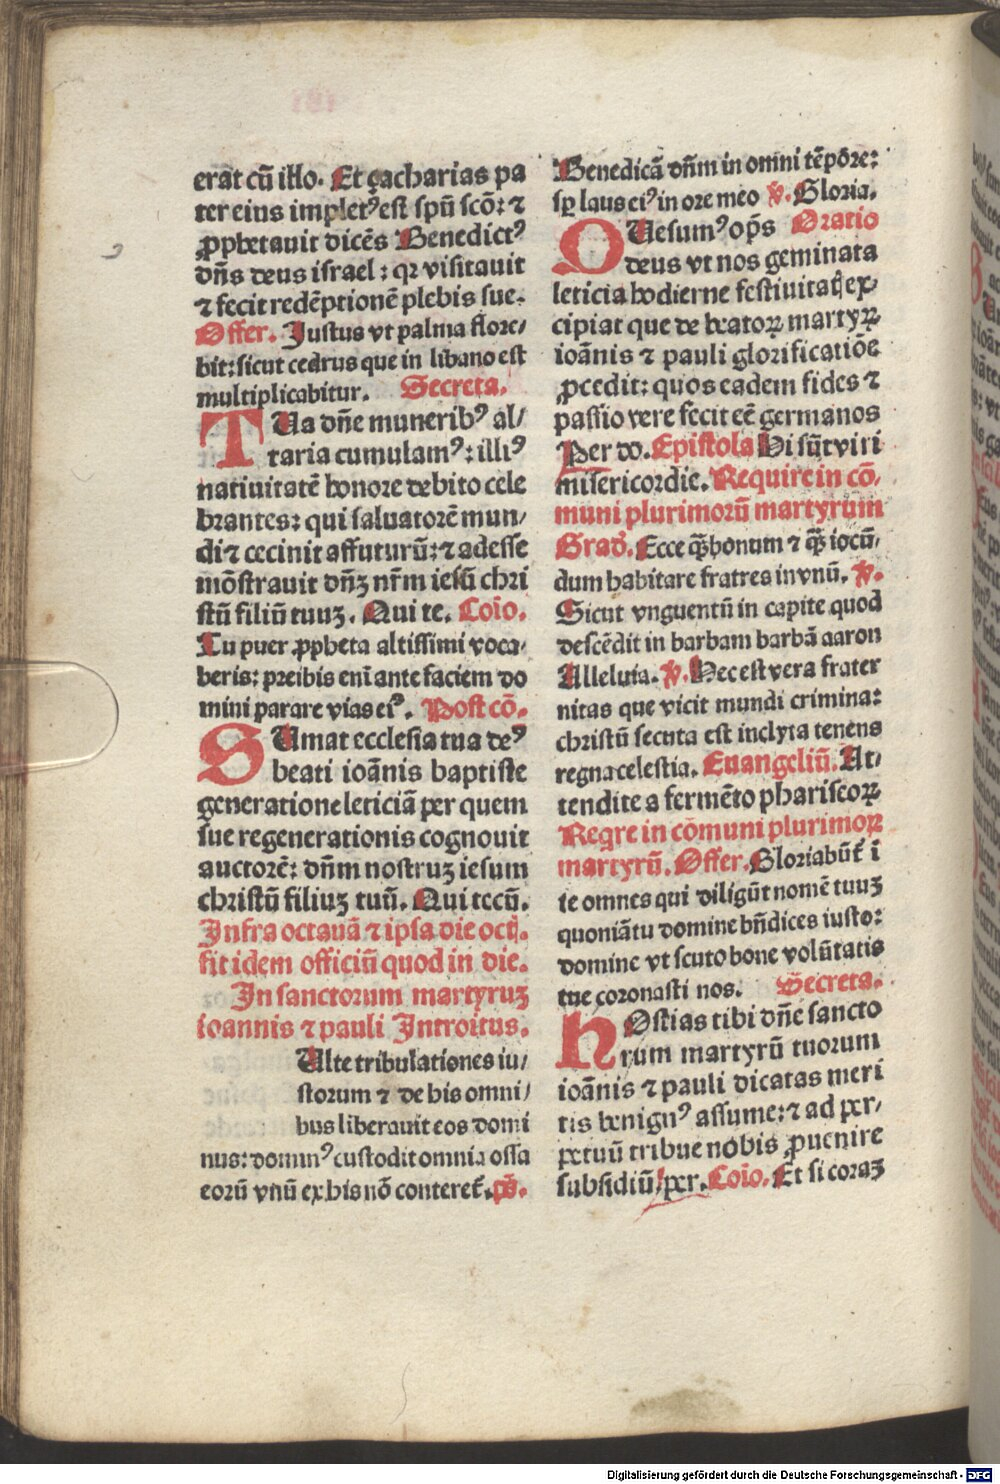 erat cū illo. Et zacharias pa
ter eius implet᷒ est spū scō: ⁊
ꝓphetauit dicēs Benedict᷒
dn̄s deus israel : qꝛ visitauit
⁊ fecit redēptionē plebis sue.
Offer. Justus vt palma flore/
bit: sicut cedrus que in libano est
multiplicabitur. Secreta.
TUa dn̄e munerib᷒ al/
taria cumulam᷒: illi᷒
natiuitatē honore debito cele
brantes: qui saluatorē mun/
di ⁊ cecinit affuturū: ⁊ adesse
mōstrauit dn̄ꝫ nr̄m iesū chri
stū filiū tuuꝫ. Qui te. Coīo.
Tu puer ꝓpheta altissimi voca/
beris: preibis eni̅ ante faciem do
mini parare vias ei᷒. Post cō.
SUmat ecclesia tua de᷒
beati ioānis baptiste
generatione leticiā per quem
sue regenerationis cognouit
auctorē: dn̄m nostruꝫ iesum
christū filiuꝫ tuū. Qui tecū.
Infra octauā ⁊ ipsa die octa̅.
fit idem officiū quod in die.
In sanctorum martyruꝫ
ioannis ⁊ pauli Introitus.
Ulte tribulationes iu/
storum ⁊ de his omni/
bus liberauit eos domi
nus: domin᷒ custodit omnia ossa
eorū vnū ex his nō conteret̄. p̄s.
Benedicā dn̄m in omni tēpore:
sꝑ laus ei᷒ in ore meo ℣. Gloria.
QUesum᷒ op̄s Oratio
deus vt nos geminata
leticia hodierne festiuitatꝭ ex/
cipiat que de beatoꝝ martyꝝ
ioānis ⁊ pauli glorificatiōe
ꝓcedit: quos eadem fides ⁊
passio vere fecit eē germanos
Per do. Epistola Hi sūt viri
misericordie. Require in cō/
muni plurimorū martyrum
Grad. Ecce q̄ꝫ bonum ⁊ q̄ꝫ iocū/
dum habitare fratres in vnū. ℣.
Sicut vnguentū in capite quod
descēdit in barbam barbā aaron
Alleluia. ℣. Hec est vera frater
nitas que vicit mundi crimina:
christū secuta est inclyta tenens
regna celestia. Euangeliū. At/
tendite a fermēto phariseoꝝ
Reqre in cōmuni plurimoꝝ
martyrū. Offer. Gloriabūt̄ ī
te omnes qui diligūt nomē tuuꝫ
quoniā tu domine bn̄dices iusto:
domine vt scuto bone volūtatis
tue coronasti nos. Secreta.
HOstias tibi dn̄e sancto
rum martyrū tuorum
ioānis ⁊ pauli dicatas meri
tis benign᷒ assume: ⁊ ad per/
petuū tribue nobis ꝓuenire
subsidiū/per. Coīo. Et si coraꝫ
Digitalisierung gefördert durch die Deutsche Forschungsgemeinschaft - DFG